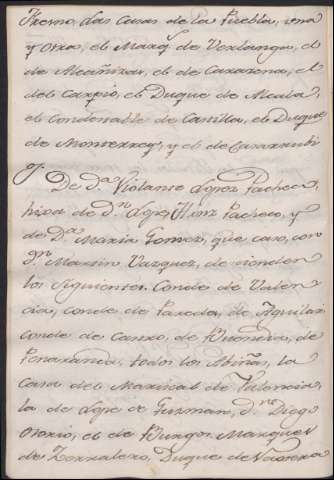 Fresno, las Casas de la Puebla, una
y otra, el Marq.s de Verlanga, el
de Alcañizas, el de Caracena, el
del Carpio, el Duque de Alcala,
el Condestable de Castilla, el Duque
de Monterrey, y el de Casarrubi
os.
De D.a Violante Lopez Pacheco,
hixa de D.n Lope Frnz Pacheco, y
de D.a Maria Gomez, que caso, con
D.n Martin Vazquez, descienden
los siguientes. Conde de Valen
cia, conde de Paredes, de Aguilar,
conde de Castro, de Buendia, de
Penaranda, todos los Niños, la
Casa del Mariscal de Valencia,
la de Lope de Guzman, D.n Diego
Osorio, el de Burgos, Marques
de Torralero, Duque de Naxera